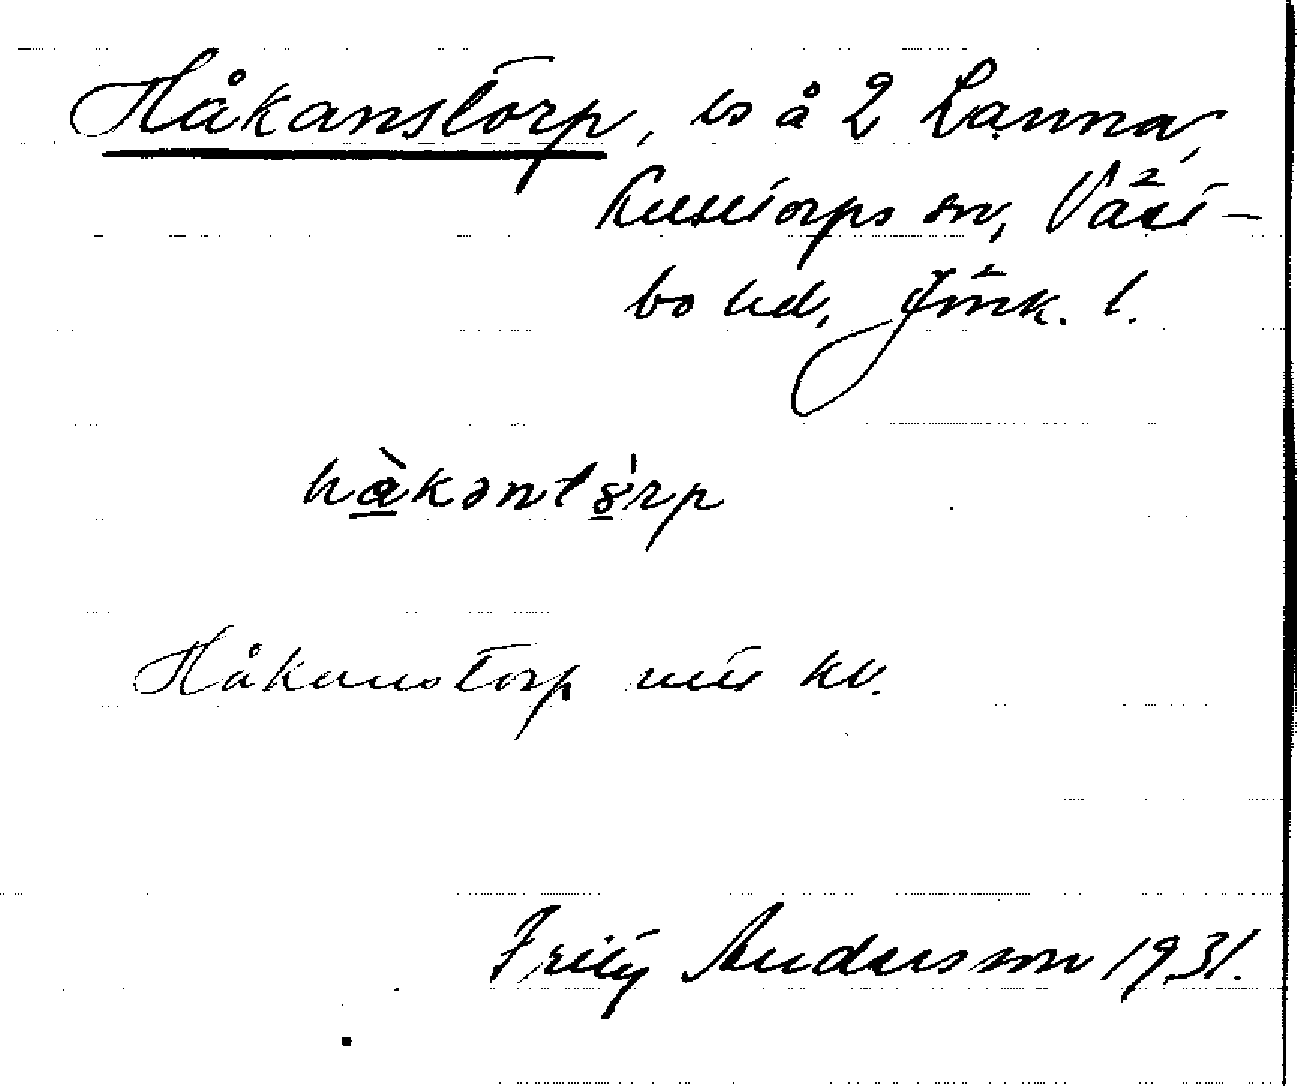 Håkanstorp, ls å 2 Lanna,
Kulltorps sn, Väst-
bo hd, Jönk. l.
hàkəntórp
Håkanstorp
Andersson 1931.